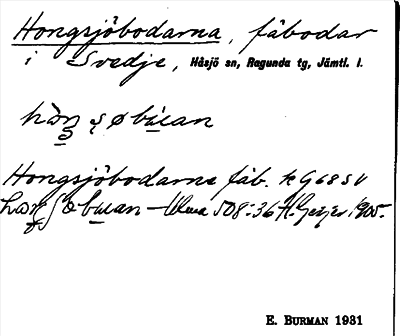 Hongsjöbodarna, fäbodar
i Svedje, Håsjö sn, Ragunda tg, Jämtl. l.
Hongsjöbodarna fäb. k G 68 SV
508:36 H. Geijer 1905.
E. BURMAN 1931